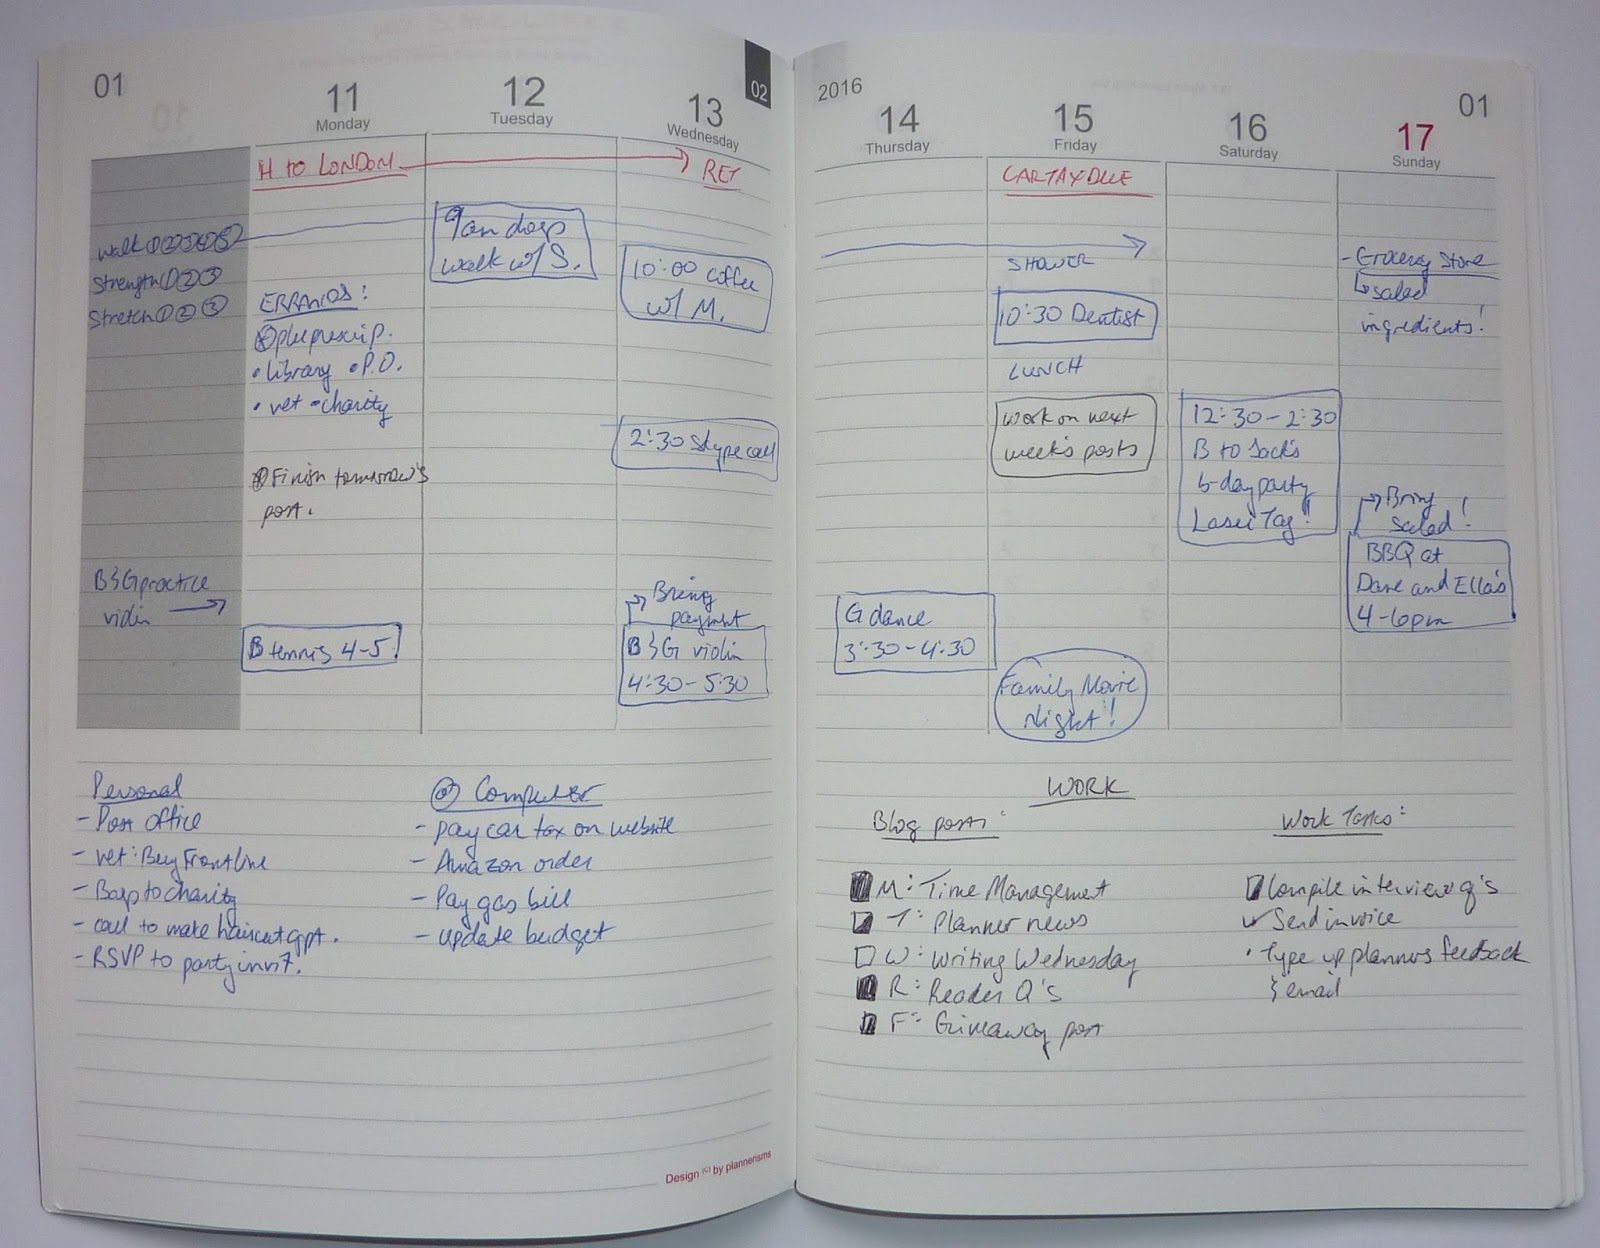 01
11
Monday
12
Tuesday
13
Wednesday
02
H to LONDON
RET
walk ① ② ③ ④ ⑤
Strength ① ② ③
Stretch ① ② ③
9am dogs
walk w/ S.
10:00 coffee
w/ M.
ERRANDS:
prescrip.
• Library • P.O.
• vet • charity
2:30 Skype call
Finish tomorrow's
post.
B & G practice
violin
B tennis 4-5
Bring
payment
B & G violin
4:30-5:30
Personal
- Post office
- vet: Buy Frontline
- Bags to charity
- call to make haircut appt.
- RSVP to party invit.
@ Computer
- pay car tax on website
- Amazon order
- Pay gas bill
- update budget
Design (C) by plannerisms
2016
14
Thursday
15
Friday
16
Saturday
17
Sunday
01
CAR TAX DUE
SHOWER
10:30 Dentist
LUNCH
Work on next
week's posts
- Grocery Store
salad
ingredients!
12:30-2:30
B to Jack's
b-day party
Laser Tag!
Bring
salad!
BBQ at
Dave and Ella's
4-6pm
G dance
3:30-4:30
Family Movie
Night!
WORK
Blog posts:
M: Time Management
T: Planner news
W: Writing Wednesday
R: Reader Q's
F: Giveaway post
Work Tasks:
Compile interview q's
Send invoice
• Type up planners feedback
& email